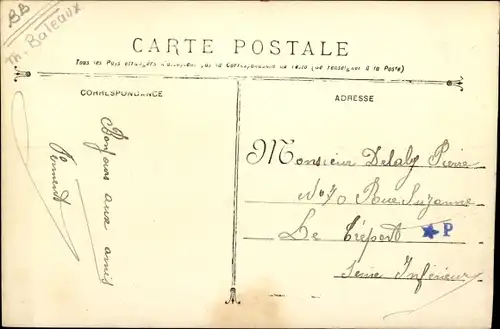 BB
M. Bateaux
CARTE POSTALE
Tous les Pays étrangers n'acceptent pas la Correspondance au recto (se renseigner à la Poste)
CORRESPONDANCE
ADRESSE
Bonjour aux amis
Monsieur Delaby Pierre
N° 70 Rue Suzanne
Le Tréport
★ P
Seine Inférieure